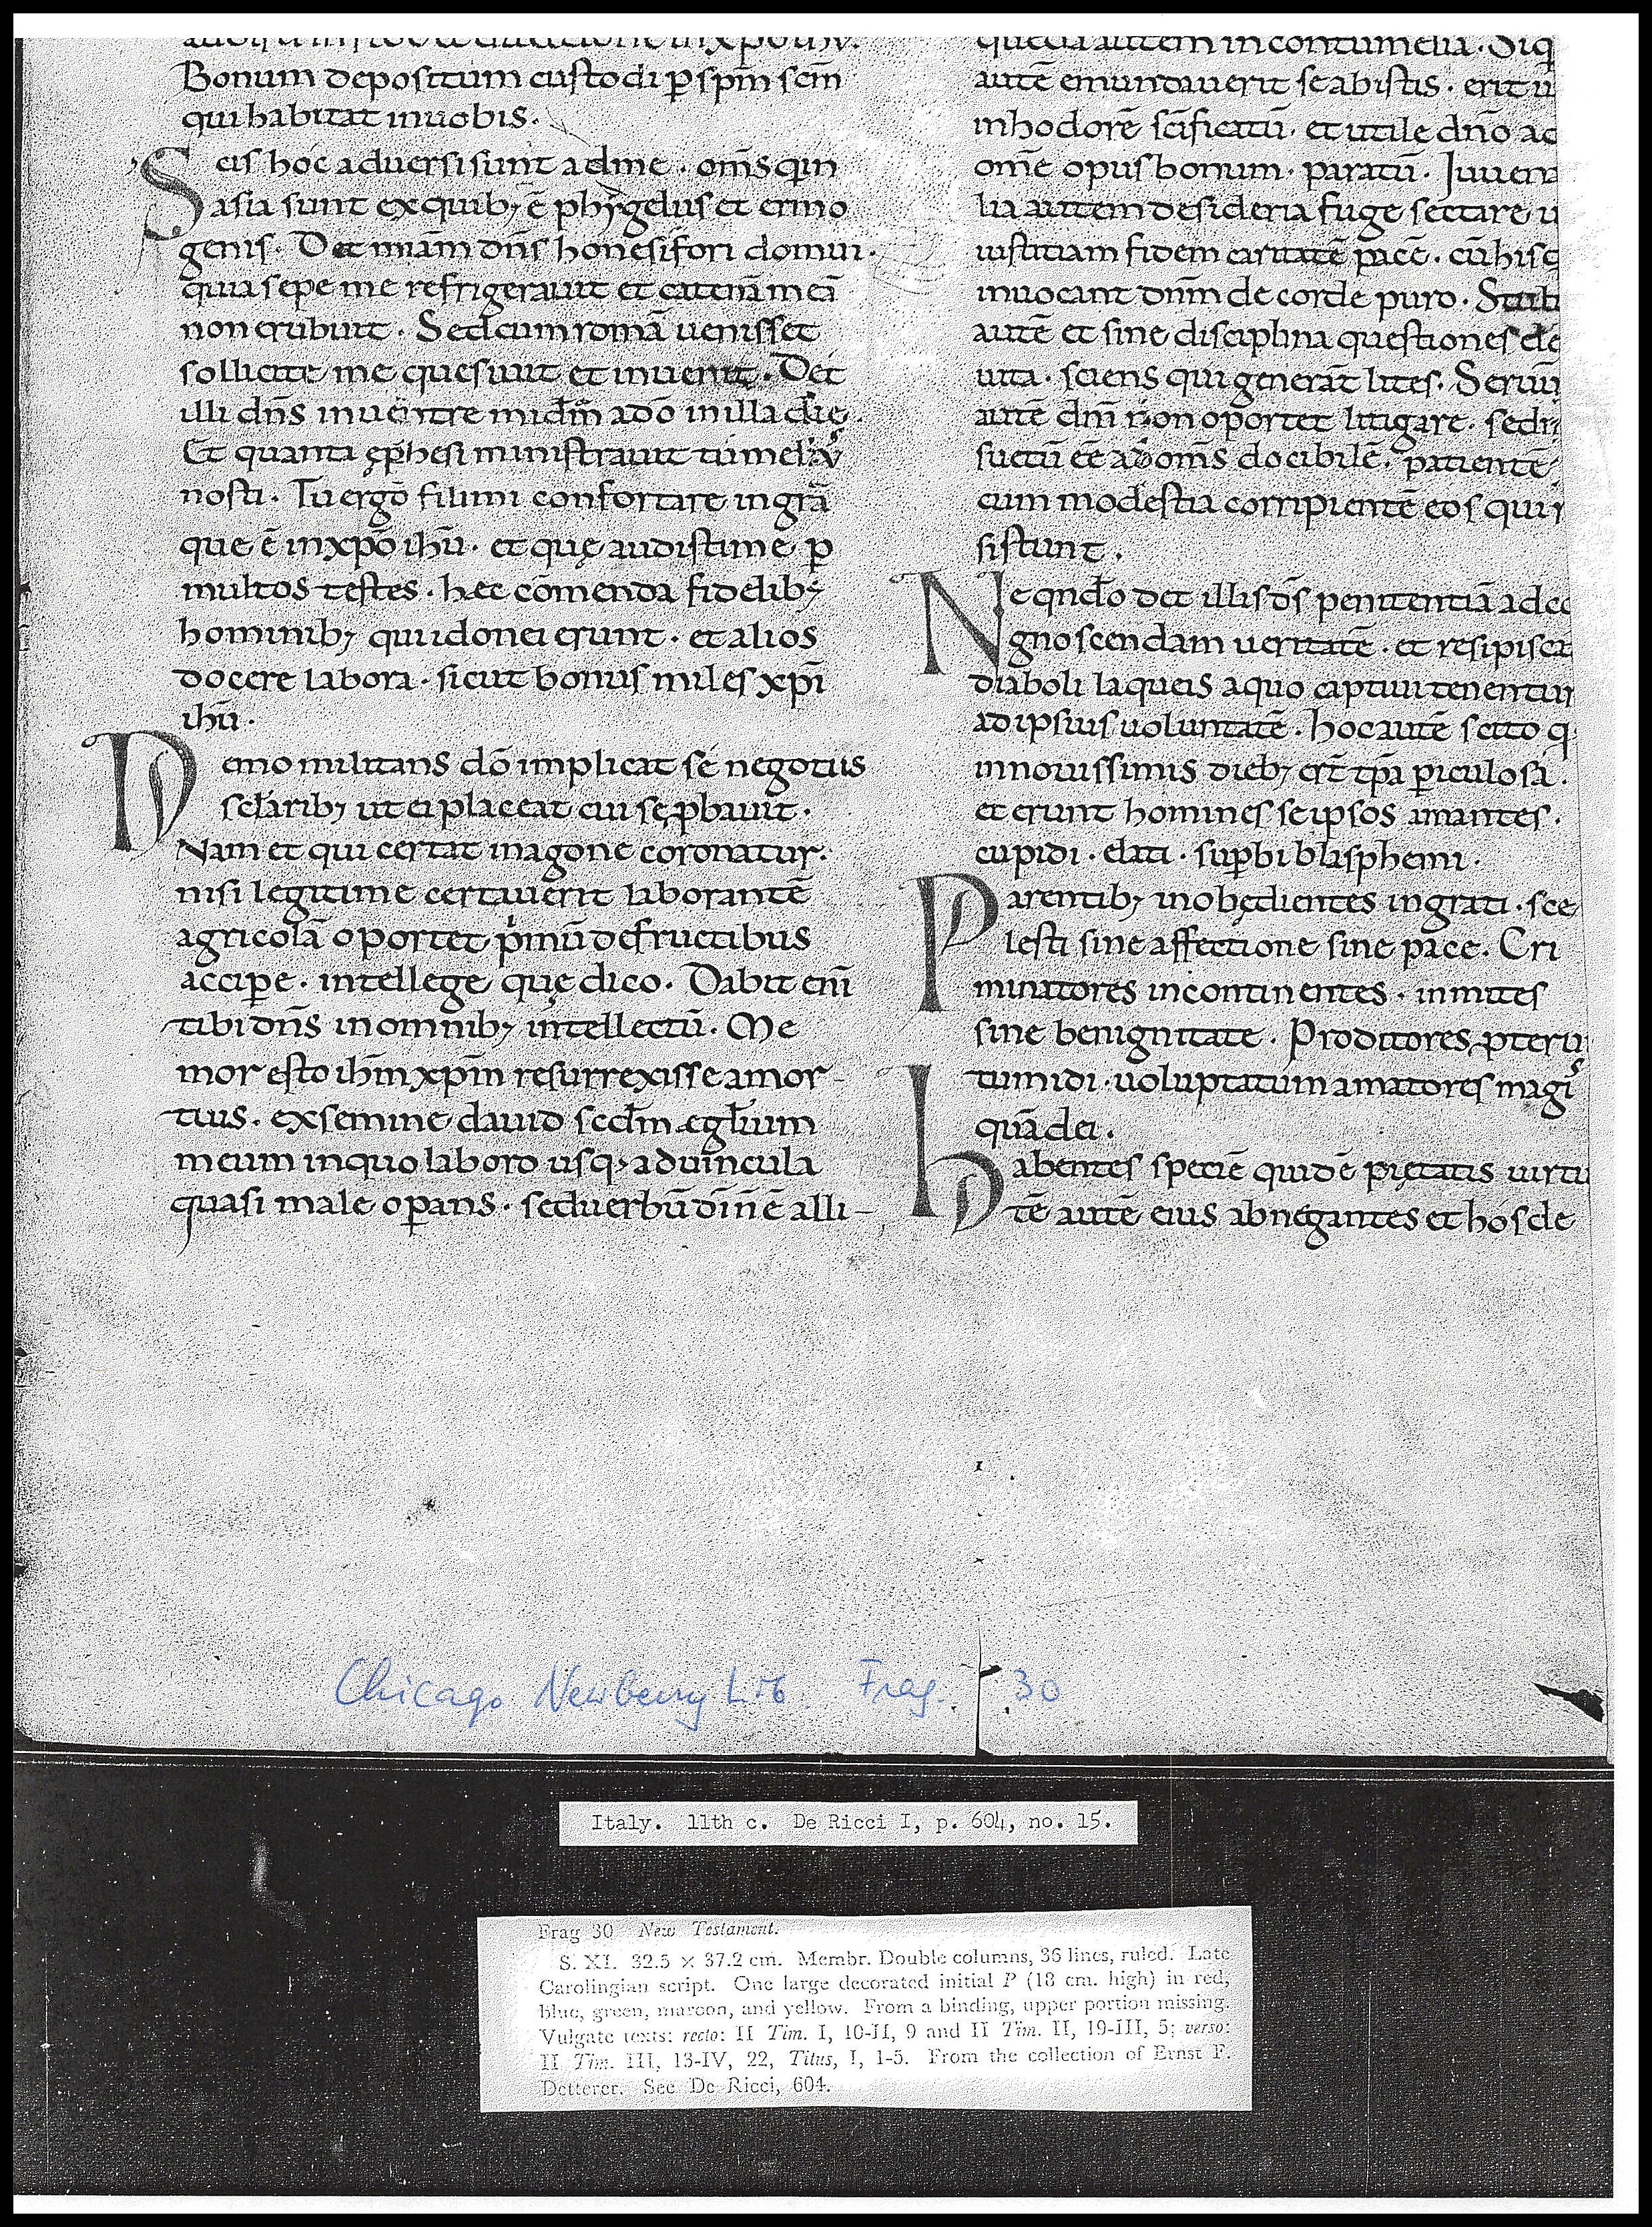 Bonum depositum custodi p̄ sp̄m sc̄m
qui habitat inuobis.
Scis hoc aduersi sunt adme. om̄s qui in
asia sunt exquib; ē phẏgelus et ermo
genis. Det miam̄ dn̄s honesifori domui.
quia sepe me refrigerauit et catenā meā
non erubuit. Sed cum romā uenisset
sollicite me quesiuit et inuenit. Det
illi dn̄s inuenire mīam adō inilla die.
Et quanta ęphesi ministrauit tu melius
nosti. Tu ergo fili mi confortare in grā
que ē in xpō ihū. et quę audisti a me p̄
multos testes. hec cōmenda fidelib;
hominib; qui idonei erunt. et alios
docere labora. sicut bonus miles xpī
ihū.
Nemo militans dō implicat se negotiis
sclarib; ut ei placeat cui se p̄bauit.
Nam et qui certat inagone coronatur.
nisi legitime certauerit laborantē
agricolā oportet p̍mū defructibus
accipe. intellege quę dico. Dabit enī
tibi dn̄s inomnib; intellectū. Me
mor esto ihm̄ xpm̄ resurrexisse amor-
tuis. exsemine dauid scdm̄ eglium
meum inquo laboro usq; aduincula
quasi male opans. sed uerbū dī nē alli-
quedā autem incontumeliā. Siq
autē emundauerit se abistis. erit u
inhodorē sc̄ificatū. et utile dn̄o ad
om̄e opus bonum. paratū. Iuuena
lia autem desideria fuge sectare u
iustitiam fidem caritatē pacē. cū his q
inuocant dnm̄ de corde puro. Stult
autē et sine disciplina questiones de
uita. sciens qui generāt lites. Seruū
autē dn̄i non oportet litigare. sed
suetū ēē ad om̄s docibilē. patientē
cum modestia corripientē eos qui r
sistunt.
Ne qn̄do det illis ds̄ penitentiā ad co
gnoscendam ueritatē. et resipisca
diaboli laqueis aquo captiui tenentur
ad ipsius uoluntatē. hoc autē scito q
innouissimis dieb; ert̄ tp̄a piculosa.
et erunt homines seipsos amantes.
cupidi. elati. supbi blasphemi.
Parentib; inobędientes ingrati. sce
lesti sine affectione sine pace. Cri
minatores incontinentes. inmites
sine benignitate. Proditores p̄terui
tumidi. uoluptatum amatores magis
quā dei.
habentes speciē quidē pietatis uirtu
tē autē eius abnegantes et hos de
Chicago Newberry Lib. Frag. 30
Italy. 11th c. De Ricci I, p. 604, no. 15.
Frag 30 New Testament.
S. XI. 32.5 × 37.2 cm. Membr. Double columns, 36 lines, ruled. Late
Carolingian script. One large decorated initial P (18 cm. high) in red,
blue, green, maroon, and yellow. From a binding, upper portion missing.
Vulgate texts: recto: II Tim. I, 10-II, 9 and II Tim. II, 19-III, 5; verso:
II Tim. III, 13-IV, 22, Titus, I, 1-5. From the collection of Ernst F.
Detterer. See De Ricci, 604.